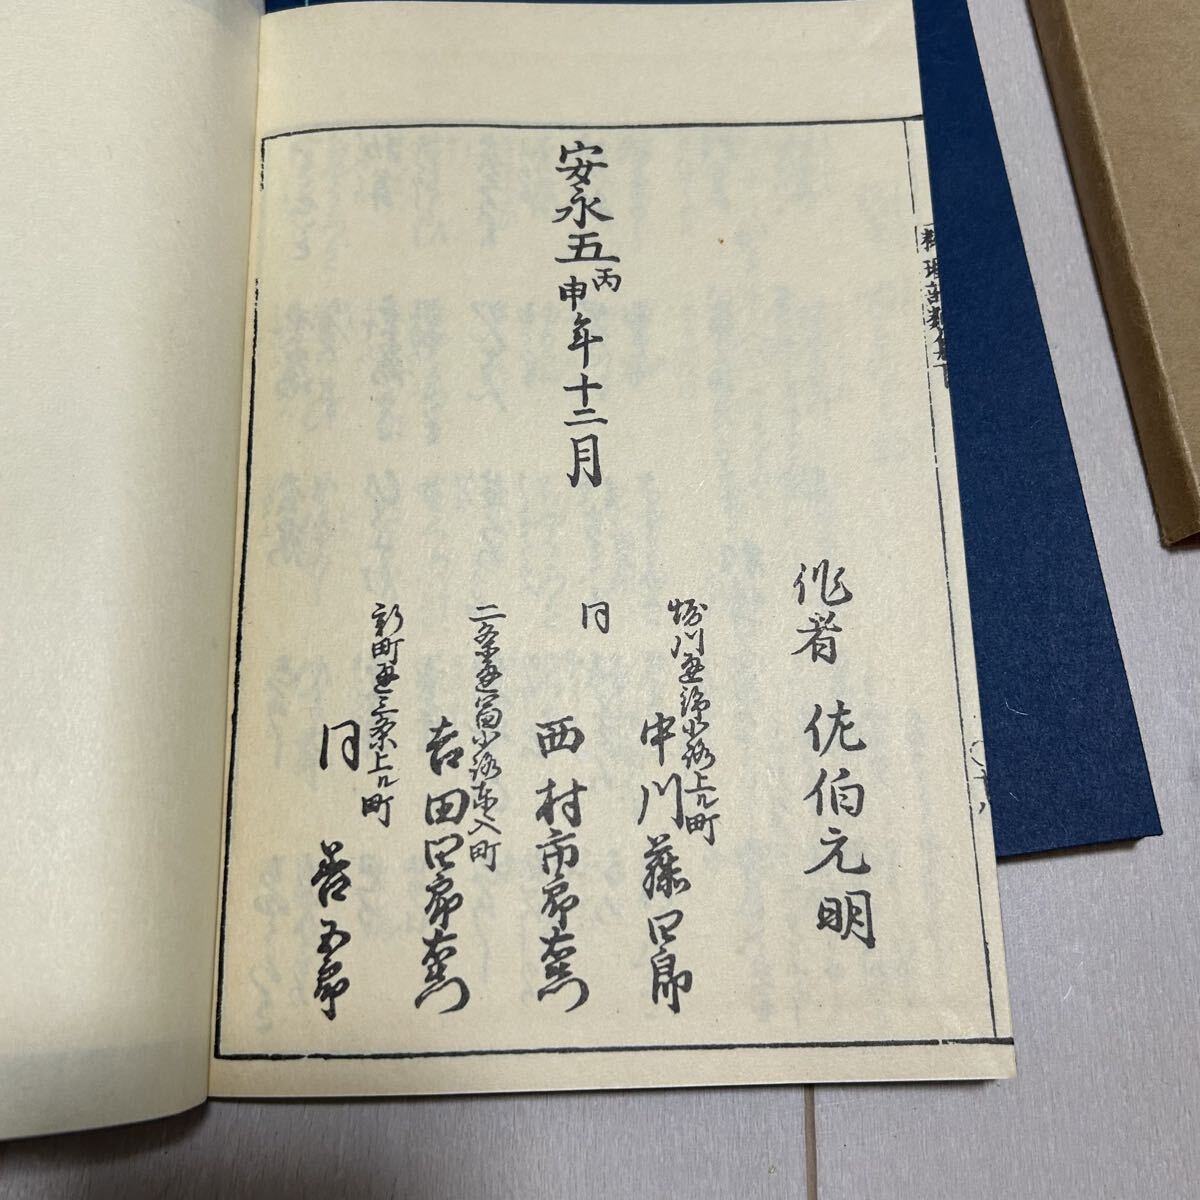 料理部類集下
安永五丙申年十二月
作者 佐伯元明
堀川通錦小路上ル町
中川藤四郎
同
西村市郎右衛門
二条通富小路東入町
吉田四郎右衛門
新町通三条上ル町
同 善五郎